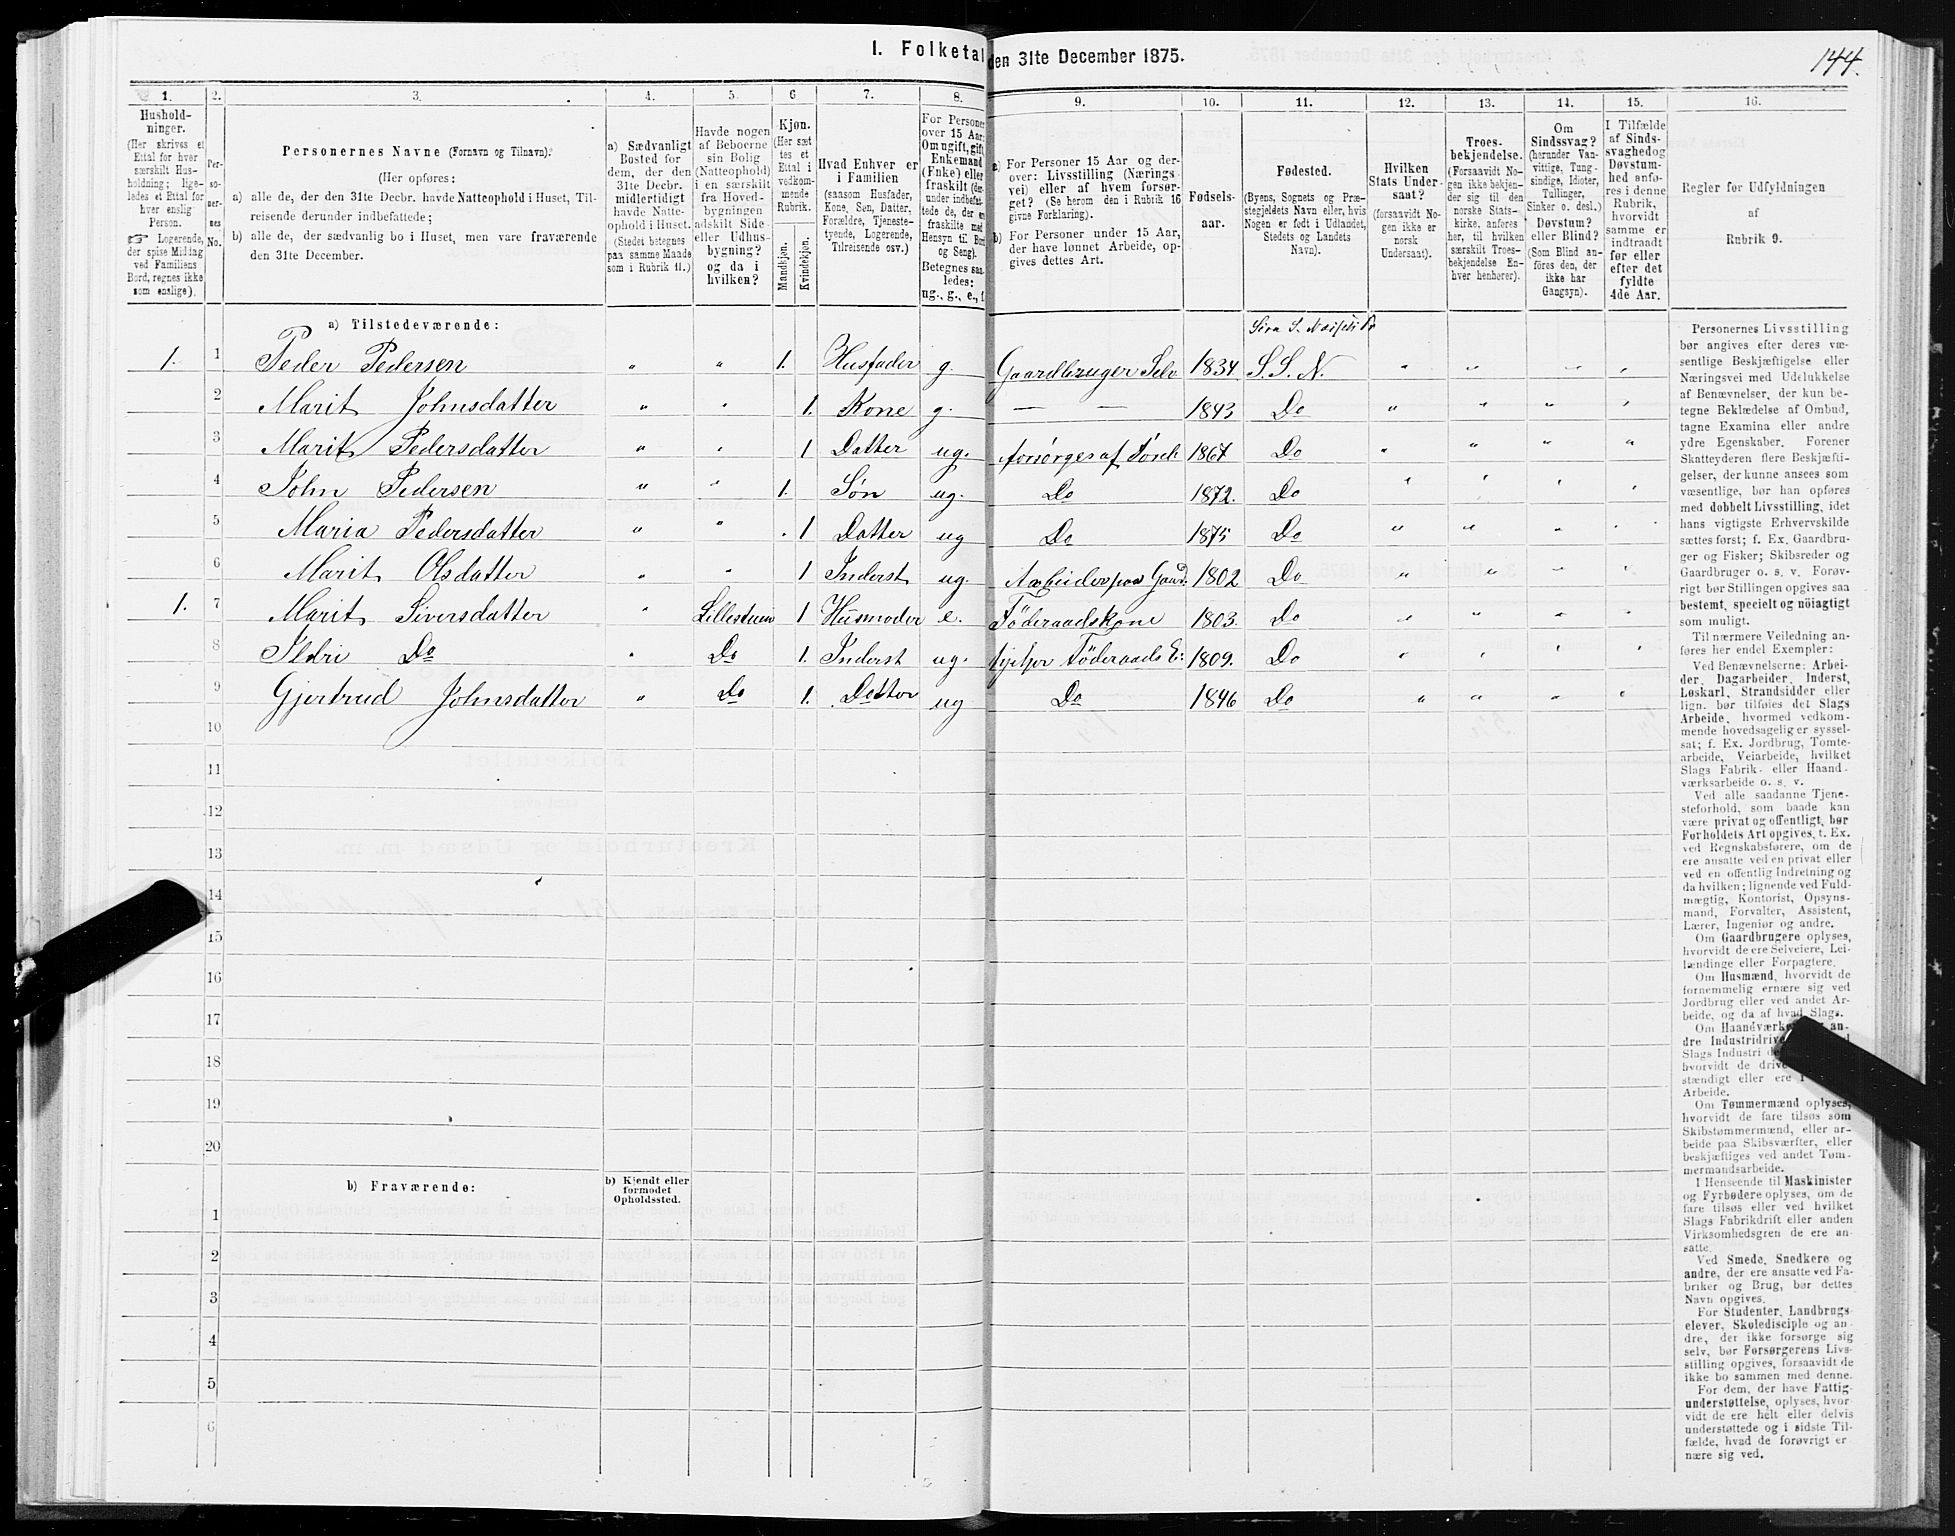 I. Folketal den 31te December 1875.
144.
1. 2. 3. 4. 5. 6 7. 8. 9. 10. 11. 12. 13. 14. 15. 16.
Hushold-
ninger.
(Her skrives et
Ettal for hver
særskilt Hus-
holdning; lige-
ledes et Ettal for
hver enslig
Person.
☞ Logerende,
der spise Middag
ved Familiens
Bord, regnes ikke
som enslige).
Per-
so-
ner-
nes
No.
Personernes Navne (Fornavn og Tilnavn).
(Her opføres:
a) alle de, der den 31te Decbr. havde Natteophold i Huset, Til-
reisende derunder indbefattede;
b) alle de, der sædvanlig bo i Huset, men vare fraværende
den 31te December.
a) Sædvanligt
Bosted for
dem, der den
31te Decbr.
midlertidigt
havde Natte-
ophold i Huset.
(Stedet betegnes
paa samme Maade
som i Rubrik 11.)
Havde nogen
af Beboerne
sin Bolig
(Natteophold)
i en særskilt
fra Hoved-
bygningen
adskilt Side-
eller Udhus-
bygning?
og da i
hvilken?
Kjøn.
(Her sæt-
tes et
Ettal i
vedkom-
mende
Rubrik.
Mandkjøn.
Kvindekjøn.
Hvad Enhver er
i Familien
(saasom Husfader,
Kone, Søn, Datter,
Forældre, Tjeneste-
tyende, Logerende,
Tilreisende osv.)
For Personer
over 15 Aar:
Om ugift, gift,
Enkemand
(Enke) eller
fraskilt (der-
under indbefat-
tede de, der ere
fraskilte med
Hensyn til Bord
og Seng).
Betegnes saa-
ledes:
ug., g., e., f.
a) For Personer 15 Aar og der-
over: Livsstilling (Nærings-
vei) eller af hvem forsør-
get? (Se herom den i Rubrik 16
givne Forklaring).
b) For Personer under 15 Aar,
der have lønnet Arbeide, op-
gives dettes Art.
Fødsels-
aar.
Fødested.
(Byens, Sognets og Præ-
stegjeldets Navn eller, hvis
Nogen er født i Udlandet,
Stedets og Landets
Navn).
Hvilken
Stats Under-
saat?
(forsaavidt No-
gen ikke er
norsk
Undersaat).
Troes-
bekjendelse.
(Forsaavidt No-
gen ikke bekjen-
der sig til den
norske Stats-
kirke, anføres
her, til hvilken
særskilt Troes-
bekjendelse En-
hver henhører).
Om
Sindssvag?
(herunder Van-
vittige, Tung-
sindige, Idioter,
Tullinger,
Sinker o. desl.)
Døvstum?
eller Blind?
(Som Blind an-
føres den, der
ikke har
Gangsyn).
I Tilfælde
af Sinds-
svaghed og
Døvstum-
hed anfø-
res i denne
Rubrik,
hvorvidt
samme er
indtraadt
før eller
efter det
fyldte
4de Aar.
Regler før Udfyldningen
af
Rubrik 9.
a) Tilstedeværende:
1. 1 Peder Pedersen " " 1. Husfader g. Gaardbruger Selv 1834 S. S. N. " " " "
2 Marit Johnsdatter " " 1. Kone g. — — 1843 Do " " " "
3 Marit Pedersdatter " " 1 Datter ug. forsørges af 1867 Do " " " "
4 John Pedersen " " 1. Søn ug. Do 1872. Do " " " "
5 Maria Pedersdatter " " 1 Datter ug Do 1875 Do " " " "
6 Marit Olsdatter " " 1 Inderst ug. Arbeider paa Gaard. 1802 Do " " " "
1. 7 Marit Siversdatter " Lillestuen 1 Husmoder e. Föderaadskone 1803. Do " " " "
8 Ildri Do " Do 1. Inderst ug. Föderaads E: 1809. Do " " " "
9 Gjertrud Johnsdatter " Do 1. Datter ug Do 1846 Do " " " "
10
11
12
13
14
15
16
17
18
19
20
b) Fraværende:
b) Kjendt eller
formodet
Opholdssted.
1
2
3
4
5
6
Personernes Livsstilling
bør angives efter deres væ-
sentlige Beskjæftigelse eller
Næringsvei med Udelukkelse
af Benævnelser, der kun be-
tegne Beklædelse af Ombud,
tagne Examina eller andre
ydre Egenskaber. Forener
Skatteyderen flere Beskjæfti-
gelser, der kunne ansees som
væsentlige, bør han opføres
med dobbelt Livsstilling, idet
hans vigtigste Erhvervskilde
sættes først; f. Ex. Gaardbru-
ger og Fisker; Skibsreder og
Gaardbruger o. s. v. Forøv-
rigt bør Stillingen opgives saa
bestemt, specielt og nöiagtigt
som muligt.
Til nærmere Veiledning an-
føres her endel Exempler:
Ved Benævnelserne: Arbei-
der, Dagarbeider, Inderst,
Løskarl, Strandsidder eller
lign. bør tilføies det Slags
Arbeide, hvormed vedkom-
mende hovedsagelig er syssel-
sat; f. Ex. Jordbrug, Tomte-
arbeide, Veiarbeide, hvilket
Slags Fabrik- eller Haand-
værksarbeide o. s. v.
Ved alle saadanne Tjene-
steforhold, som baade kan
være privat og offentligt, bør
Forholdets Art opgives, t. Ex.
ved Regnskabsførere, om de
ere ansatte ved en privat eller
ved en offentlig Indretning og
da hvilken; lignende ved Fuld-
mægtig, Kontorist, Opsyns-
mand, Forvalter, Assistent,
Lærer, Ingeniør og andre.
Om Gaardbrugere oplyses,
hvorvidt de ere Selveiere, Lei-
lændinge eller Forpagtere.
Om Husmænd, hvorvidt de
fornemmelig ernære sig ved
Jordbrug eller ved andet Ar-
beide, og da af hvad Slags.
Om Haandværke an-
dre Industridrive
Slags Industri
hvorvidt de drive
stændigt eller ere i
Arbeide.
Om Tømmermænd oplyses,
hvorvidt de fare tilsøs som
Skibstømmermænd, eller ar-
beide paa Skibsværfter, eller
beskjæftiges ved andet Tøm-
mermandsarbeide.
I Henseende til Maskinister
og Fyrbødere oplyses, om de
fare tilsøs eller ved hvilket
Slags Fabrikdrift eller anden
Virksomhedsgren de ere an-
satte.
Ved Smede, Snedkere og
andre, der ere ansatte ved Fa-
briker og Brug, bør dettes
Navn opgives.
For Studenter, Landbrugs-
elever, Skoledisciple og an-
dre, der ikke forsørge sig
selv, bør Forsørgerens Livs-
stilling opgives, forsaavidt de
ikke bo sammen med denne.
For dem, der have Fattig-
understøttelse, oplyses, hvor-
vidt de ere helt eller delvis
understøttede og i sidste Til-
fælde, hvad de forøvrigt er-
nære sig ved.